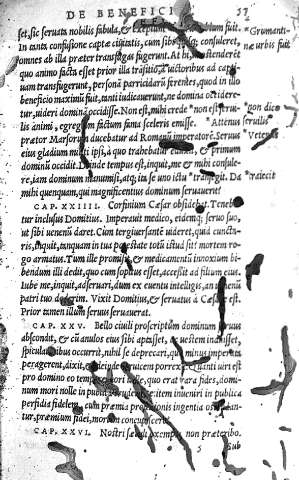 DE BENEFICI 57
set, sic seruata nobilis fabula, & exemplum fuit.
In tanta confusione captæ ciuitatis, cum sibi consuleret,
omnes ab illa præter transfugas fugerunt. At hi, ostenderet
quo animo facta esset prior illa transitio, à uictoribus ad captiuam
transfugerunt, personā parricidarū ferentes, quod in illo
beneficio maximū fuit, tanti iudicauerunt, ne domina occideretur,
uideri dominā occidisse. Non est, mihi crede non est
lis animi, egregium factum fama sceleris emisse.
prætor Marsorum ducebatur ad Romanū imperatorē. Seruus
eius gladium militi ipsi, à quo trahebatur eduxit, & primum
dominū occidit. Deinde tempus est, inquit, me & mihi consulere,
iam dominum manumisi, atq; ita se uno ictu Da
mihi quenquam, qui magnificentius dominum seruauerit.
CAP. XXIIII. Corfinium Cæsar obsidebat. Tenebatur
inclusus Domitius. Imperauit medico, eidemq; seruo suo,
ut sibi uenenū daret. Cum tergiuersantē uideret, quid cunctaris,
inquit, tanquam in tua potestate totū istud sit? mortem rogo
armatus. Tum ille promisit & medicamentū innoxium bibendum
illi dedit, quo cum sopitus esset, accessit ad filium eius.
Iube me, inquit, adseruari, dum ex euentu intelligis, an uenenū
patri tuo dederim. Vixit Domitius, & seruatus à Cæsare est.
Prior tamen illum seruus seruauerat.
CAP. XXV. Bello ciuili proscriptum dominum seruus
abscondit, & cū anulos eius sibi aptasset, ac uestem induisset,
speculatoribus occurrit, nihil se deprecari, quo minus imperata
peragerent, dixit, & deinde ceruicem porrexit. Quanti uiri est
pro domino eo tempore mori uelle, quo erat rara fides, dominum
mori nolle in publica crudelitate mitem inueniri in publica
perfidia fidelem, cum præmia proditionis ingentia ostendantur,
præmium fidei, mortem concupiscere.
CAP. XXVI. Nostri sæculi exempla non præteribo.
Sub
Grumentinæ
urbis fuit
gon dico
Attenus seruilis
Vetenus
traiecit